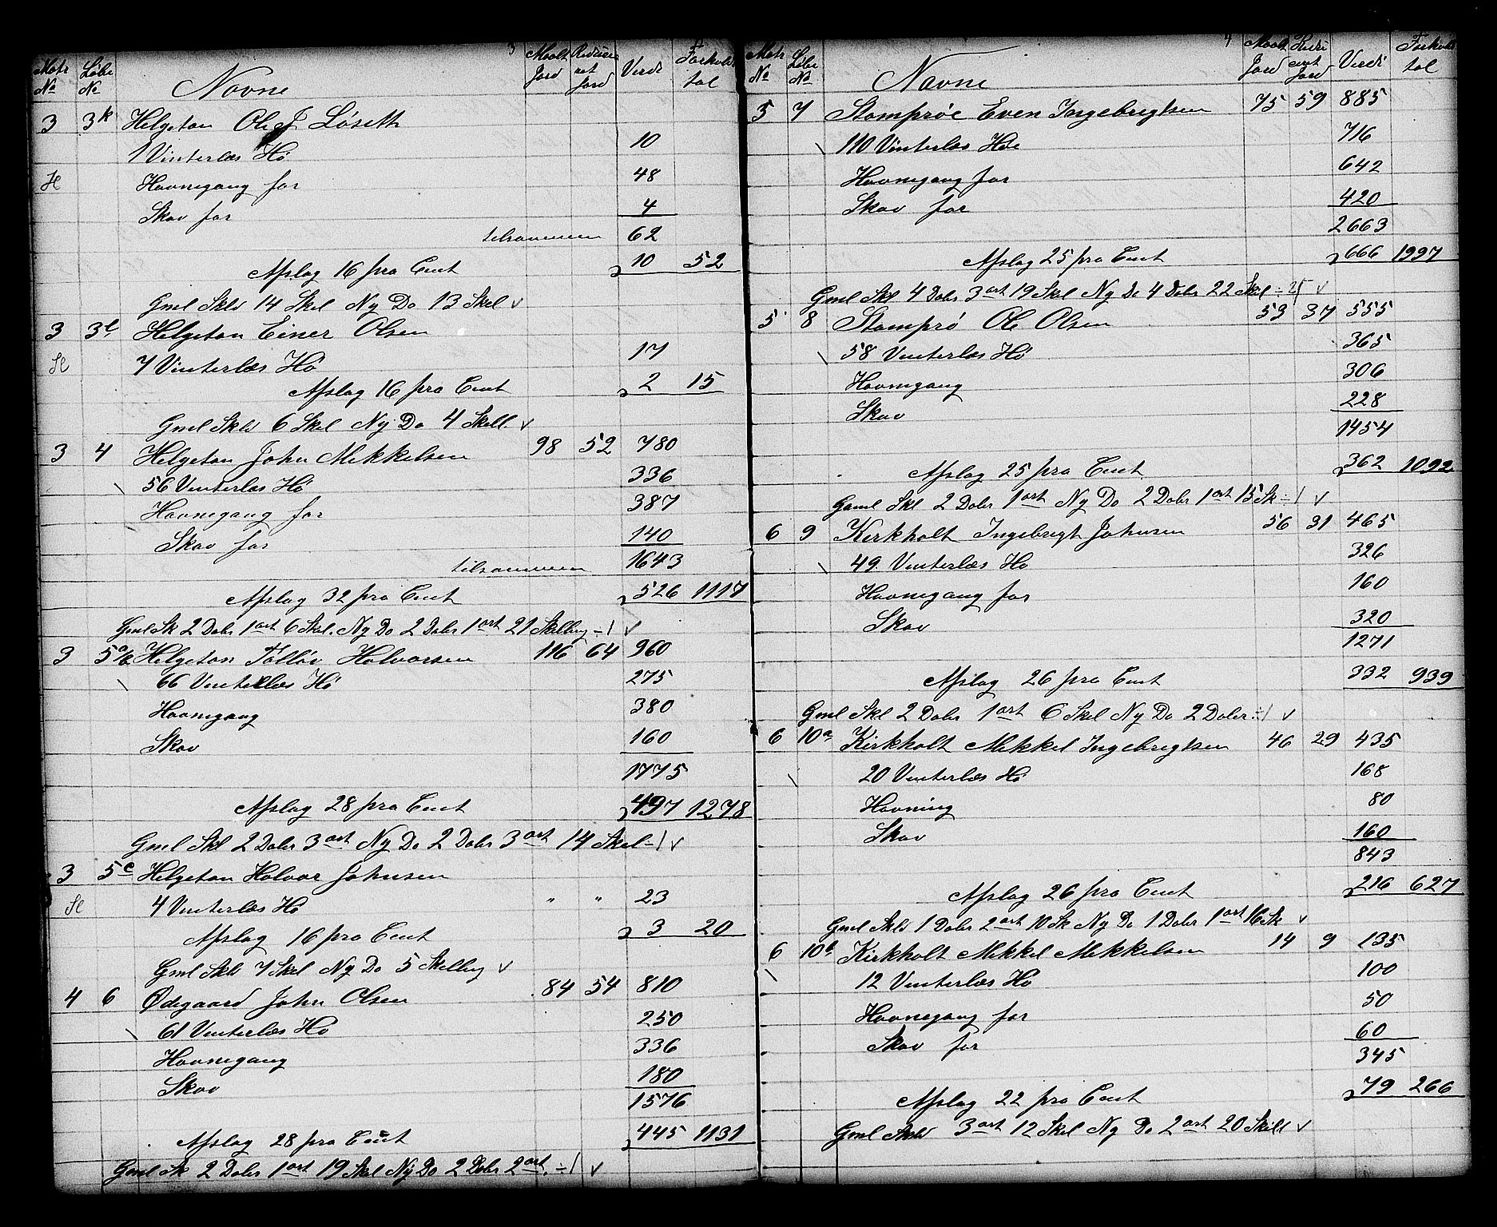 3
Matr No Løbe No Navne Maalt Jord Reduceret Jord Verdi Forholdstal
3 3k Helgeton Olaf Løseth
1 Vinterlæs Hø 10
H Havnegang for 48
Skov for 4
tilsammen 62
Afslag 16 pro Cent 10 52
Gml Skld 14 Skel Ny Do 13 Skel √
3 3l Helgeton Einer Olsen
H 7 Vinterlæs Hø 17
Afslag 16 pro Cent 2 15
Gml Skld 6 Skel Ny Do 4 Skell. √
3 4 Helgeton John Mikkelsen 98 52 780
\ 56 Vinterlæs Hø 336
Havnegang for 387
Skov for 140
tilsammen 1643
Afslag 32 pro Cent 526 1117
Gml Sk 2 Daler 1 ort 6 Skel. Ny Do 2 Daler 1 ort 21 Skelling ÷1 √
3 5a Helgeton Tolløv Halvorsen 116 64 960
\ 66 Vinterlæs Hø 275
Havnegang 380
Skov 160
1775
Afslag 28 pro Cent 497 1278
Gml Skl 2 Daler 3 ort Ny Do 2 Daler 3 ort 14 Skel ÷1 √
3 5c Helgeton Halvor Johnsen
H 4 Vinterlæs Hø " " 23
Afslag 16 pro Cent 3 20
Gml Skld 7 Skel Ny Do 5 Skelling √
4 6 Ødegaard John Olsen 84 54 810
\ 61 Vinterlæs Hø 250
Havnegang 336
Skov 180
1576
Afslag 28 pro Cent 445 1131
Gml Sk 2 Daler 1 ort 19 Skel Ny Do 2 Daler 2 ort. ÷1 √
4
Matr No Løbe No Navne Maalt Jord Reducert Jord Verdi Forholdstal
5 7 Stomprøe Even Ingebrigtsen 75 59 885
\ 110 Vinterlæs Høe 716
Havnegang for 642
Skov for 420
2663
Afslag 25 pro Cent 666 1997
Gml Skl 4 Daler 3 ort 19 Skel Ny Do 4 Daler 22 Skel √
5 8 Stomprø Ole Olsen 53 37 555
\ 58 Vinterlæs Hø 365
Havnegang 306
Skov 228
1454
Afslag 25 pro Cent 362 1092
Gaml Skl 2 Daler 1 ort Ny Do 2 Daler 1 ort 15 Sk ÷1 √
6 9 Kirkholt Ingebrigt Johnsen 56 31 465
\ 49 Vinterlæs Hø 326
Havnegang for 160
Skov 320
1271
Afslag 26 pro Cent 332 939
Gml Skl 2 Daler 1 ort 6 Skel Ny Do 2 Daler ÷1 √
6 10a Kirkholt Mikkel Ingebrigtsen 46 29 435
\ 20 Vinterlæs Hø 168
Havning 80
Skov 160
843
Afslag 26 pro Cent 216 627
Gml Skld 1 Daler 2 ort 10 Sk Ny Do 1 Daler 1 ort 16 Sk √
6 10b Kirkholt Mikkel Mikkelsen 14 9 135
\ 12 Vinterlæs Hø 100
Havnegang for 50
Skov for 60
345
Afslag 22 pro Cent 79 266
Gml Skld 3 ort 12 Skel Ny Do 2 ort 20 Skill √